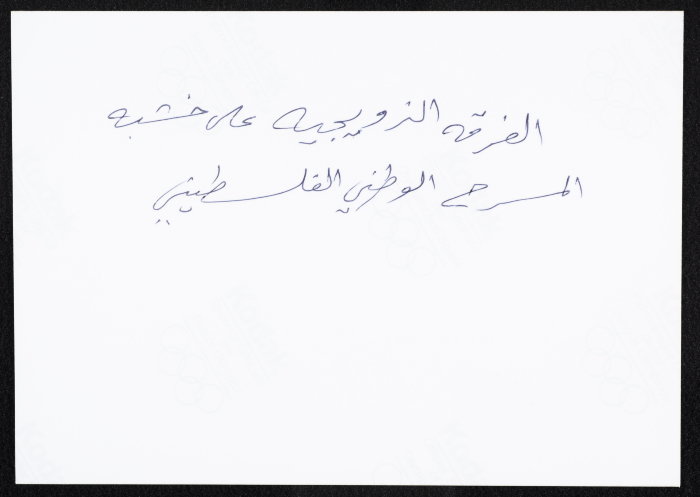 الفرقه النرويجيه على خشبه
المسرح الوطني الفلسطيني